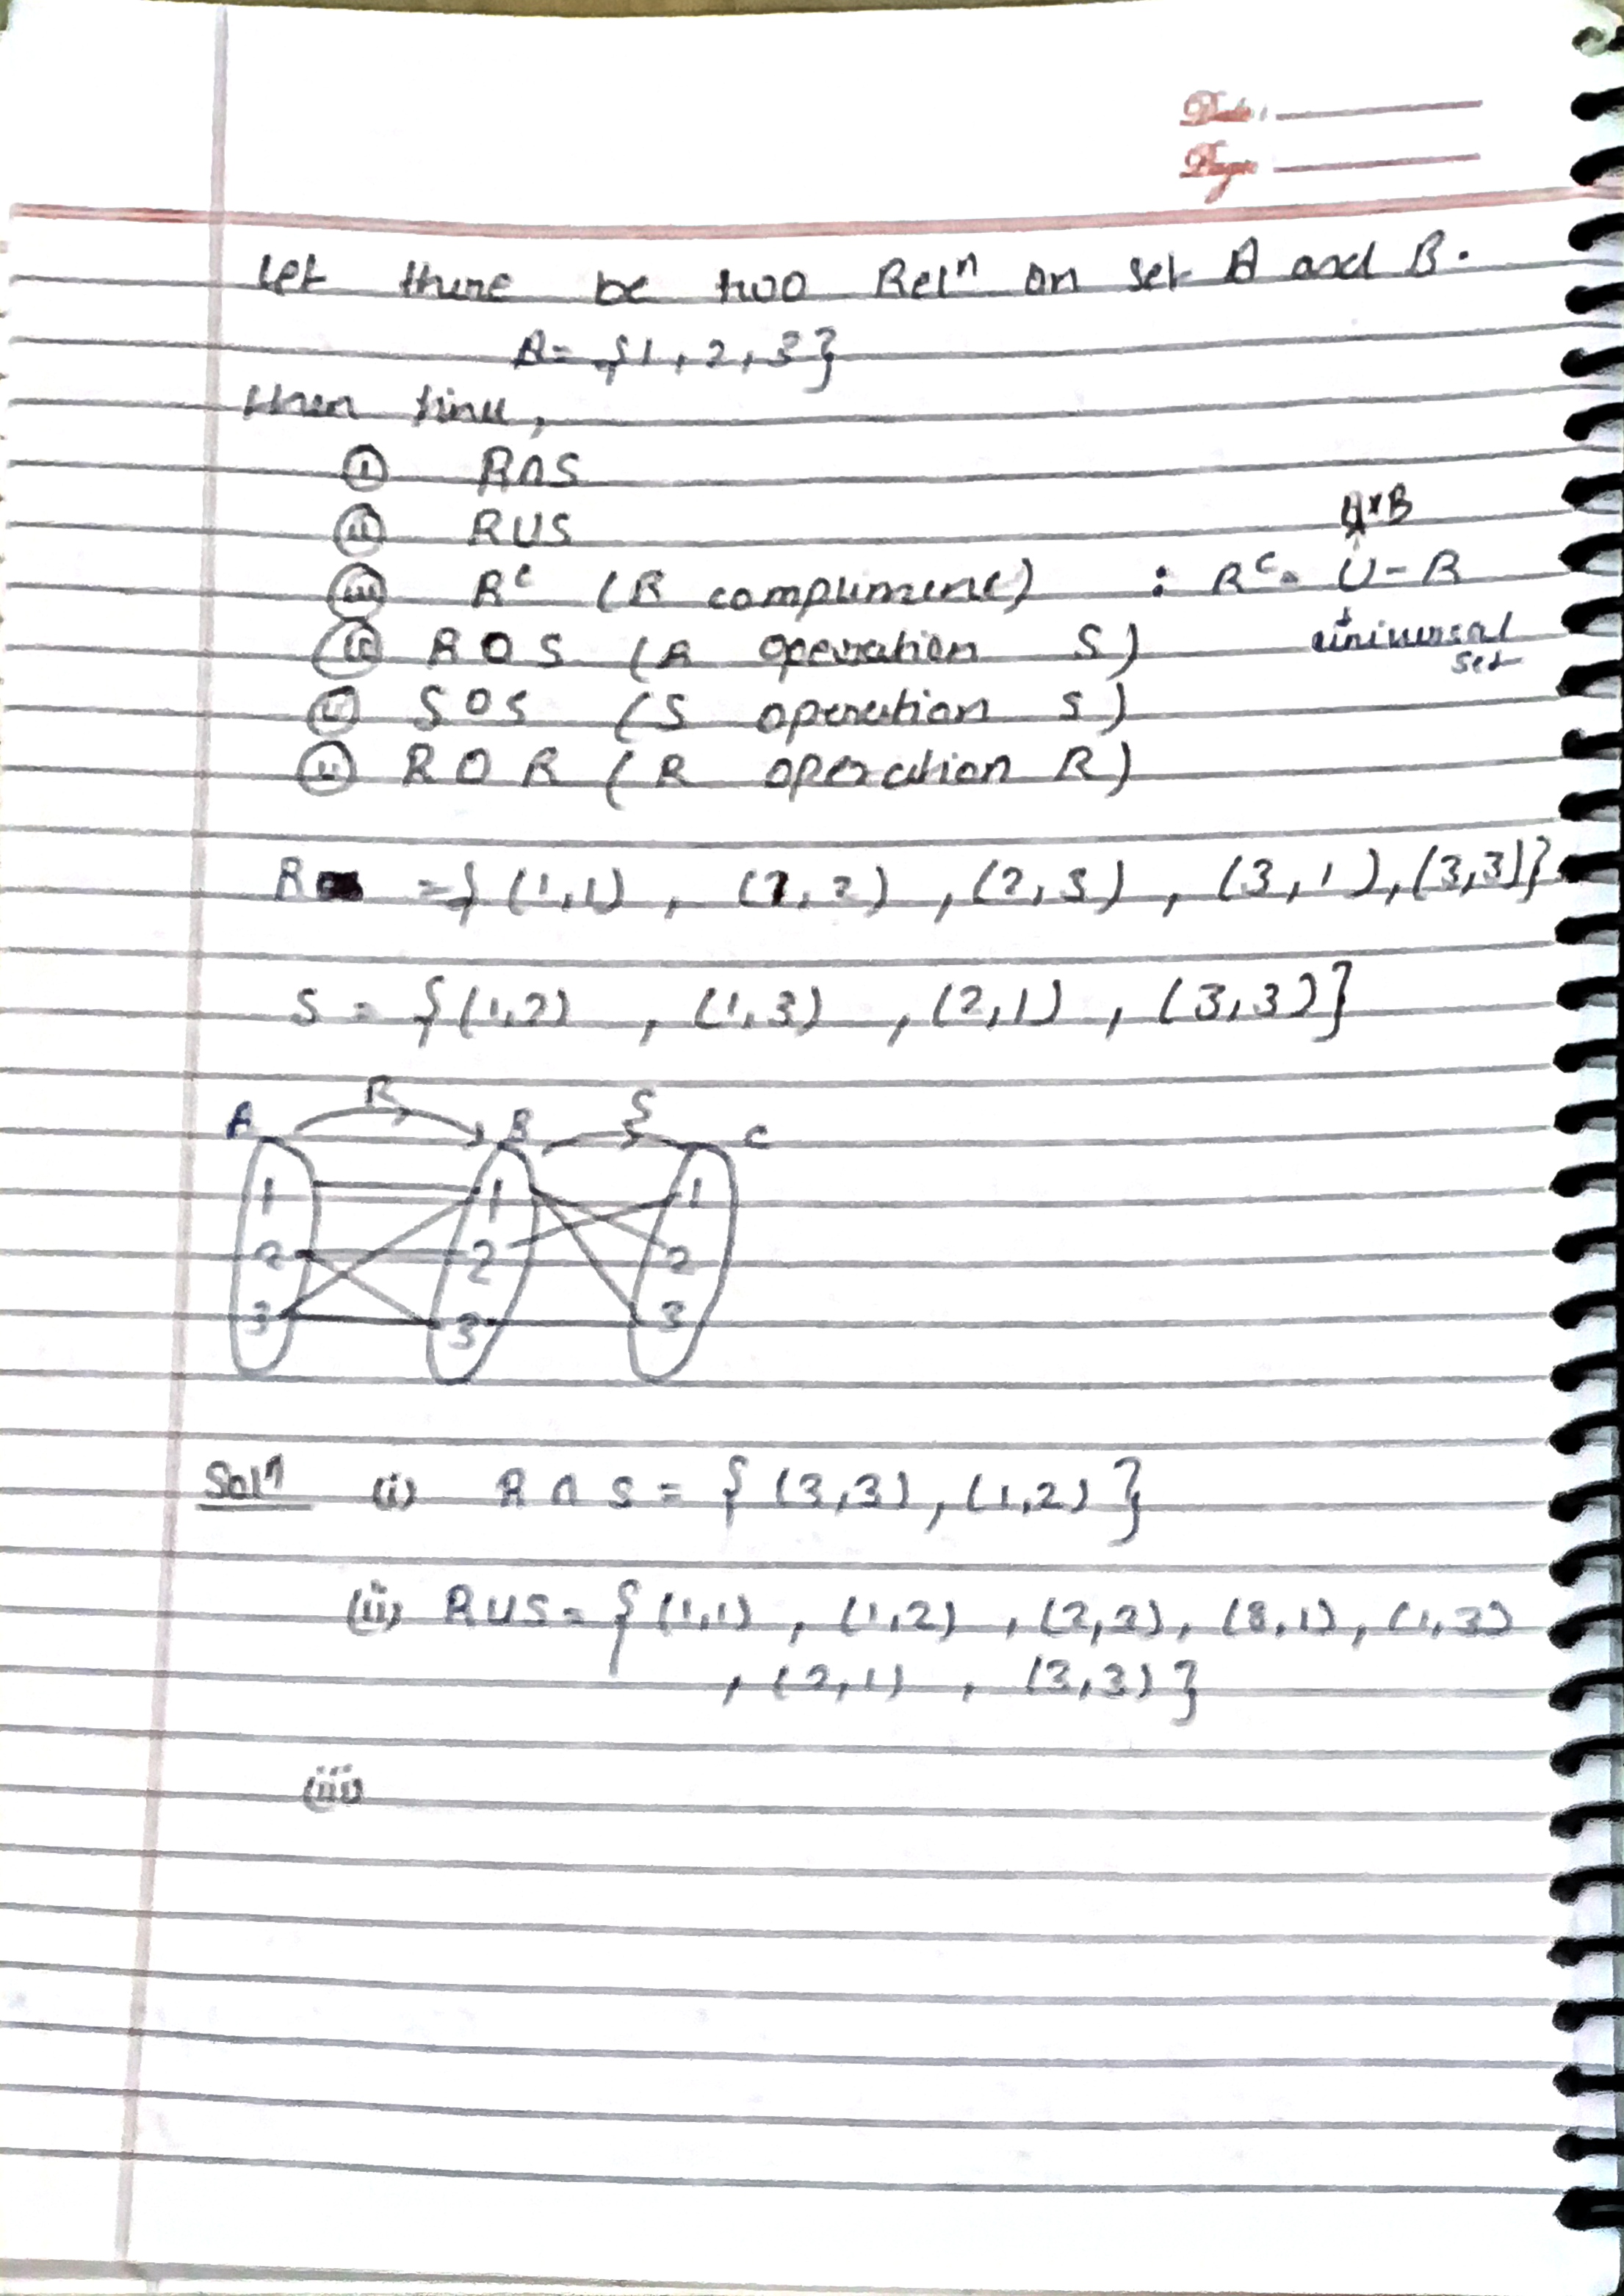 Date:
Page
Let there be two Relⁿ on set A and B.
A = {1, 2, 3}
then find,
(i) R∩S
(ii) RUS
A×B
(iii) Rᶜ (R compliment) : Rᶜ = U - R
universal
set
(iv) R O S (R operation S)
(v) S O S (S operation S)
(vi) R O R (R operation R)
R = { (1,1) , (2,2) , (2,3) , (3,1) , (3,3)}
S = {(1,2) , (1,3) , (2,1) , (3,3)}
A R B S C
1 1 1
2 2 2
3 3 3
Solⁿ (i) R ∩ S = { (3,3) , (1,2) }
(ii) RUS = { (1,1) , (1,2) , (2,2) , (3,1) , (1,3)
, (2,1) , (3,3) }
(iii)